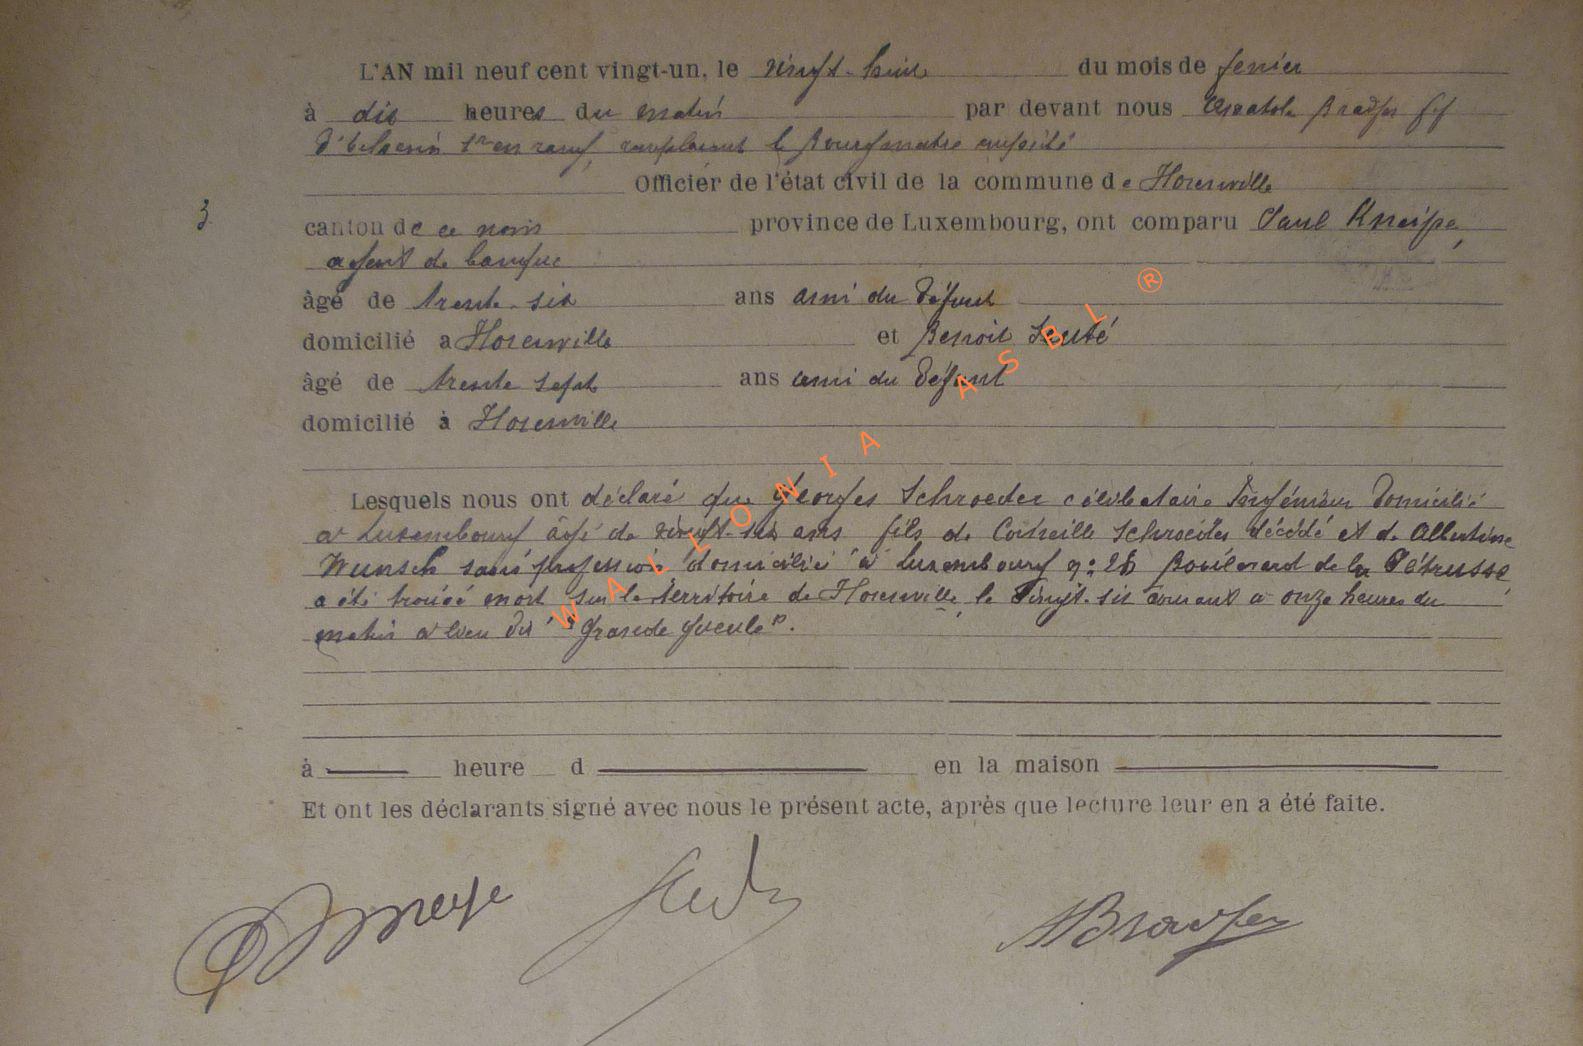 L'AN mil neuf cent vingt-un, le vingt-huit du mois de fevrier
à dix heures du matin par devant nous Anatole Bradfer ff
d'échevin 1er en rang, remplacant le Bourgmestre empéché
Officier de l'état civil de la commune de Florenville
3
canton de ce nom province de Luxembourg, ont comparu Paul Kneipe,
agent de banque
âgé de trente-six ans ami du défunt
domicilié a Florenville et Benoit
âgé de trente sept ans ami du défunt
domicilié à Florenville
Lesquels nous ont déclaré que Georges Schroeder célibataire Ingénieur domicilié
a Luxembourg âgé de vingt-six ans fils de Corneille Schroeder décédé et de Albertine
Wunsch sans profession domicilié à Luxembourg n° Boulevard de la Pétrusse,
a été trouvé mort sur le territoire de Florenville, le vingt-six courant a onze heures du
matin a lieu dit "Grande gueule".
à heure d en la maison
Et ont les déclarants signé avec nous le présent acte, après que lecture leur en a été faite.
ABradfer
WALLONIA ASBL ®